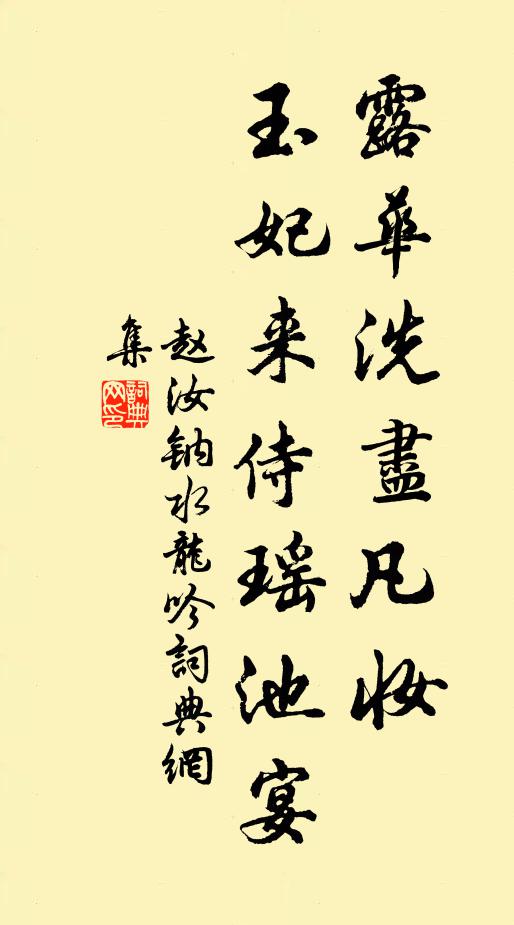 露華洗盡凡妝
玉妃来侍瑶池宴
赵汝鈉水龍吟詞典網
集
詞典網印